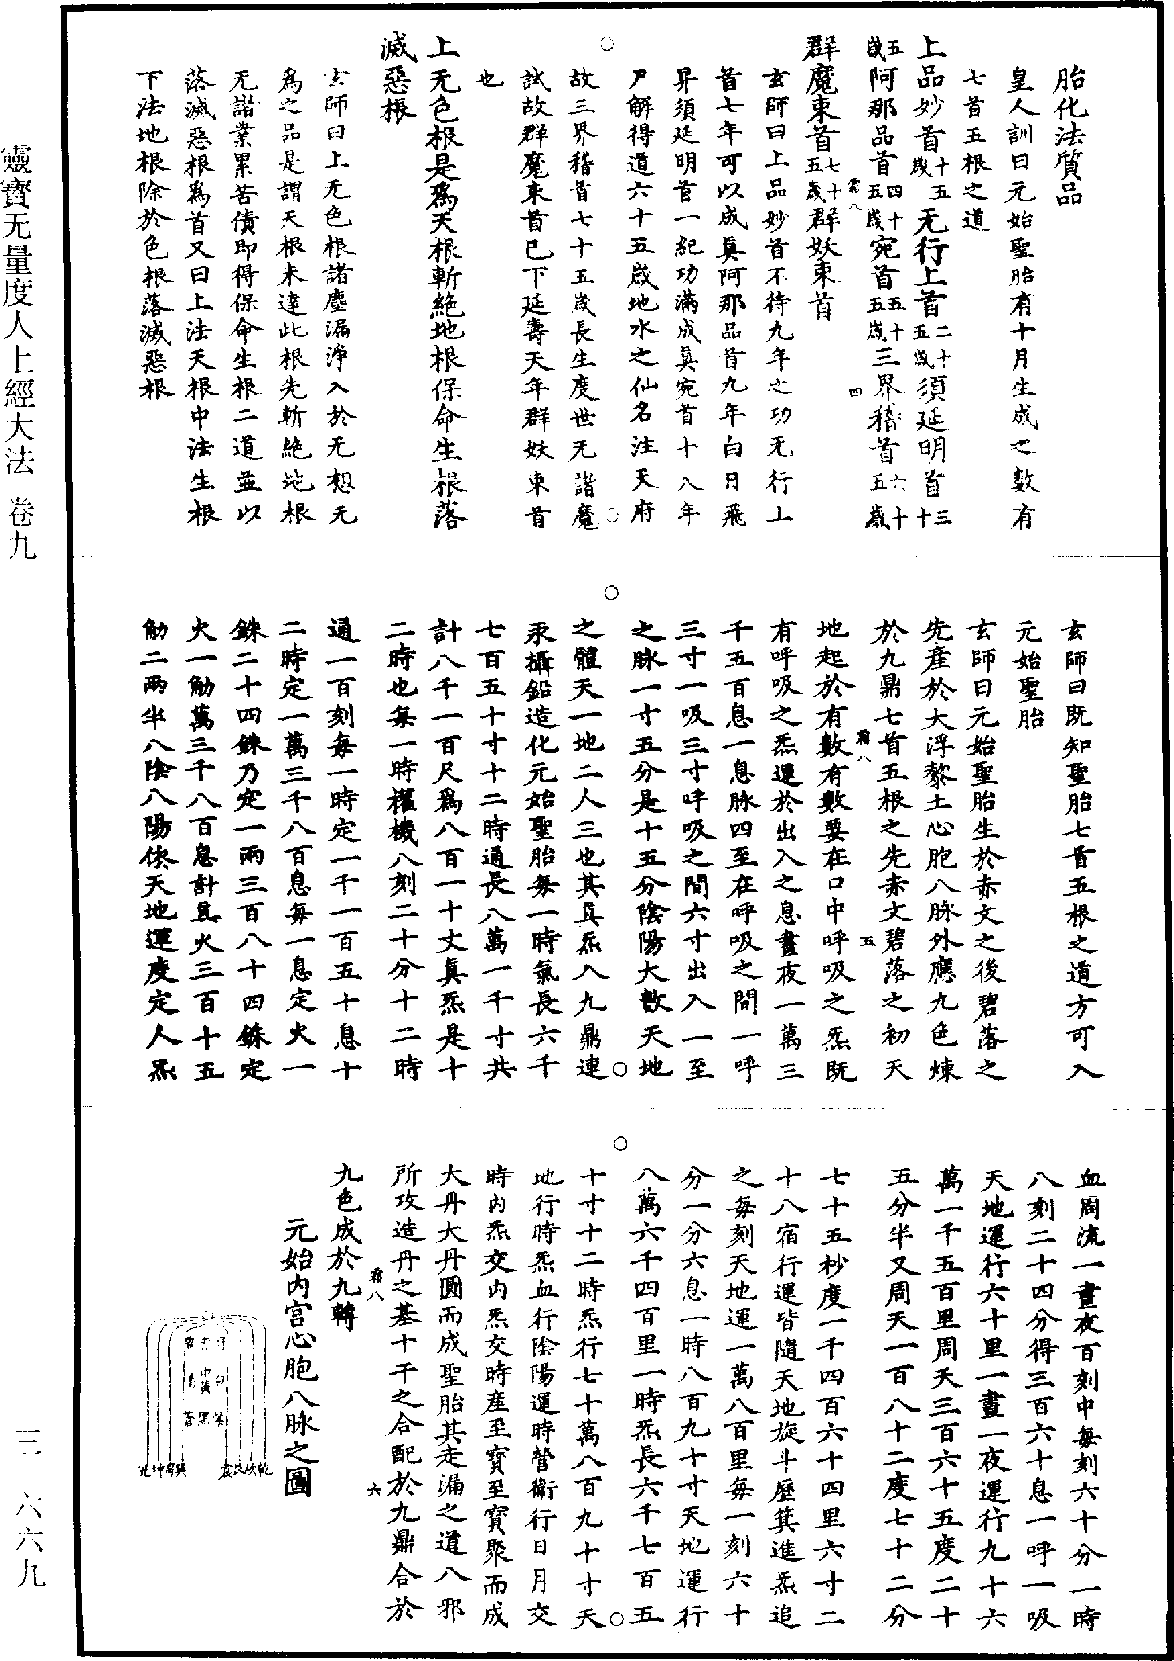 胎化法質品
皇人訓曰元始聖胎有十月生成之數有
七首五根之道
上品妙首十五歲无行上首二十五歲須延明首三十
五歲阿那品首四十五歲宛首五十五歲三界稽首六十五歲
群魔束首七十五歲群妖束首
玄師曰上品妙首不待九年之功无行上
首七年可以成真阿那品首九年白日飛
昇須延明首一紀功滿成真宛首十八年
尸解得道六十五歲地水之仙名注天府
故三界稽首七十五歲長生度世无諸魔
試故群魔束首已下延壽天年群妖束首
也
上无色根是為天根斬絕地根保命生根落
滅惡根
玄師曰上无色根諸塵漏淨入於无想无
為之品是謂天根未達此根先斬絕地根
无諸業累苦債即得保命生根二道並以
落滅惡根為首又曰上法天根中法生根
下法地根除於色根落滅惡根
玄師曰既知聖胎七首五根之道方可入
元始聖胎
玄師曰元始聖胎生於赤文之後碧落之
先產於大浮黎土心胞八脉外應九色煉
於九鼎七首五根之先赤文碧落之初天
地起於有數有數要在口中呼吸之炁既
有呼吸之炁運於出入之息晝夜一萬三
千五百息一息脉四至在呼吸之間一呼
三寸一吸三寸呼吸之間六寸出入一至
之脉一寸五分是十五分陰陽大數天地
之體天一地二人三也其真炁入九鼎連
汞攝鉛造化元始聖胎每一時氣長六千
七百五十寸十二時通長八萬一千寸共
計八千一百尺為八百一十丈真炁是十
二時也每一時權機八刻二十分十二時
通一百刻每一時定一千一百五十息十
二時定一萬三千八百息每一息定火一
銖二十四銖乃定一兩三百八十四銖定
火一觔萬三千八百息計真火三百十五
觔二兩半八陰八陽俠天地運度定人炁
血周流一晝夜百刻中每刻六十分一時
八刻二十四分得三百六十息一呼一吸
天地運行六十里一晝一夜運行九十六
萬一千五百里周天三百六十五度二十
五分半又周天一百八十二度七十二分
七十五秒度一千四百六十四里六寸二
十八宿行運皆隨天地旋斗歷箕進炁追
之每刻天地運一萬八百里每一刻六十
分一分六息一時八百九十寸天地運行
八萬六千四百里一時炁長六千七百五
十寸十二時炁行七十萬八百九十寸天
地行時炁血行陰陽運時營衛行日月交
時內炁交內炁交時產至寶至寶聚而成
大丹大丹圓而成聖胎其走漏之道八邪
所攻造丹之基十干之合配於九鼎合於
九色成於九轉
元始內宮心胞八脉之圖
靈寶无量度人上經大法 卷九
三 六六九